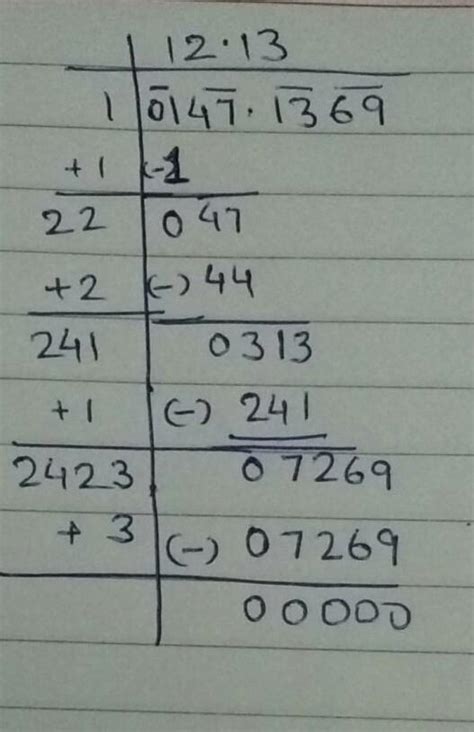 12.13
1 0147.1369
+1 (-1
22 047
+2 (-) 44
241 0313
+1 (-) 241
2423 07269
+3 (-) 07269
00000